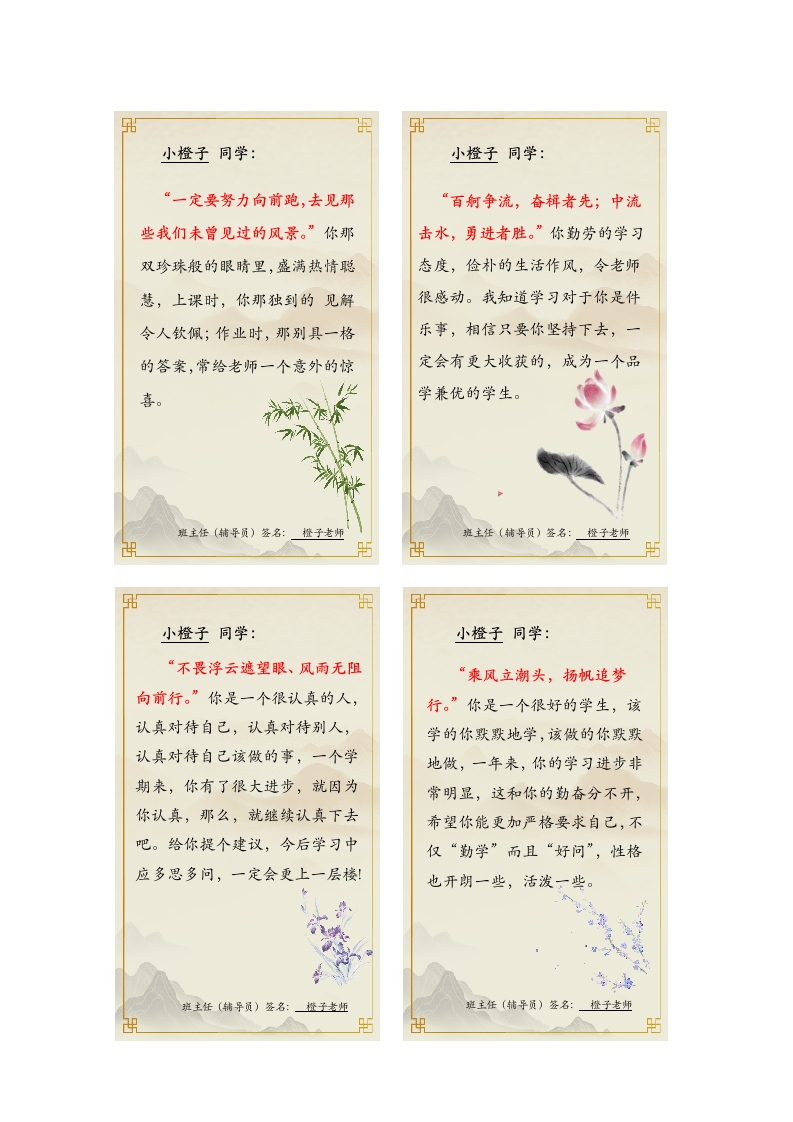 小橙子 同学：
“一定要努力向前跑，去见那
些我们未曾见过的风景。”你那
双珍珠般的眼睛里，盛满热情聪
慧，上课时，你那独到的 见解
令人钦佩；作业时，那别具一格
的答案，常给老师一个意外的惊
喜。
班主任（辅导员）签名： 橙子老师
小橙子 同学：
“百舸争流，奋楫者先；中流
击水，勇进者胜。”你勤劳的学习
态度，俭朴的生活作风，令老师
很感动。我知道学习对于你是件
乐事，相信只要你坚持下去，一
定会有更大收获的，成为一个品
学兼优的学生。
班主任（辅导员）签名： 橙子老师
小橙子 同学：
“不畏浮云遮望眼、风雨无阻
向前行。”你是一个很认真的人，
认真对待自己，认真对待别人，
认真对待自己该做的事，一个学
期来，你有了很大进步，就因为
你认真，那么，就继续认真下去
吧。给你提个建议，今后学习中
应多思多问，一定会更上一层楼!
班主任（辅导员）签名： 橙子老师
小橙子 同学：
“乘风立潮头，扬帆追梦
行。”你是一个很好的学生，该
学的你默默地学，该做的你默默
地做，一年来，你的学习进步非
常明显，这和你的勤奋分不开，
希望你能更加严格要求自己，不
仅“勤学”而且“好问”，性格
也开朗一些，活泼一些。
班主任（辅导员）签名： 橙子老师